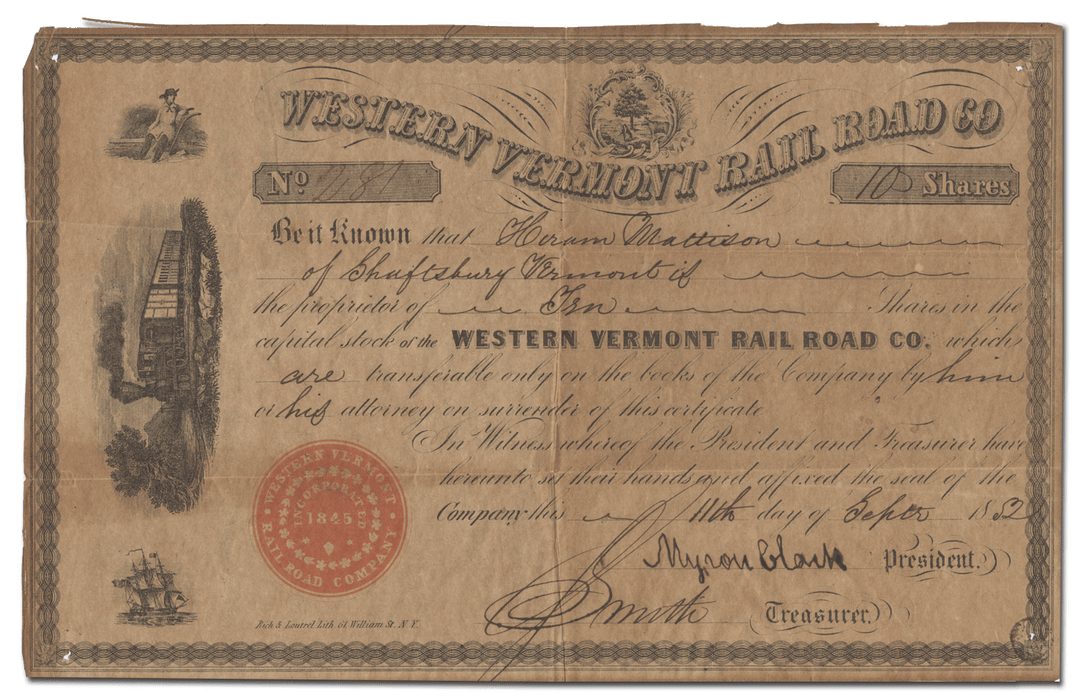 WESTERN VERMONT RAIL ROAD CO
No
10 Shares
Be it Known that Hiram Mattison
of Shaftsbury Vermont is
the proprietor of Ten Shares in the
capital stock of the WESTERN VERMONT RAIL ROAD CO. which
are transferable only on the books of the Company by him
or his attorney on surrender of this certificate
In Witness whereof the President and Treasurer have
hereunto set their hands and affixed the seal of the
Company this 11th day of Septr 1852
Myron Clark President.
Smith Treasurer.
WESTERN VERMONT
RAIL ROAD COMPANY
INCORPORATED
1845
Lith 61, William St. N. Y.